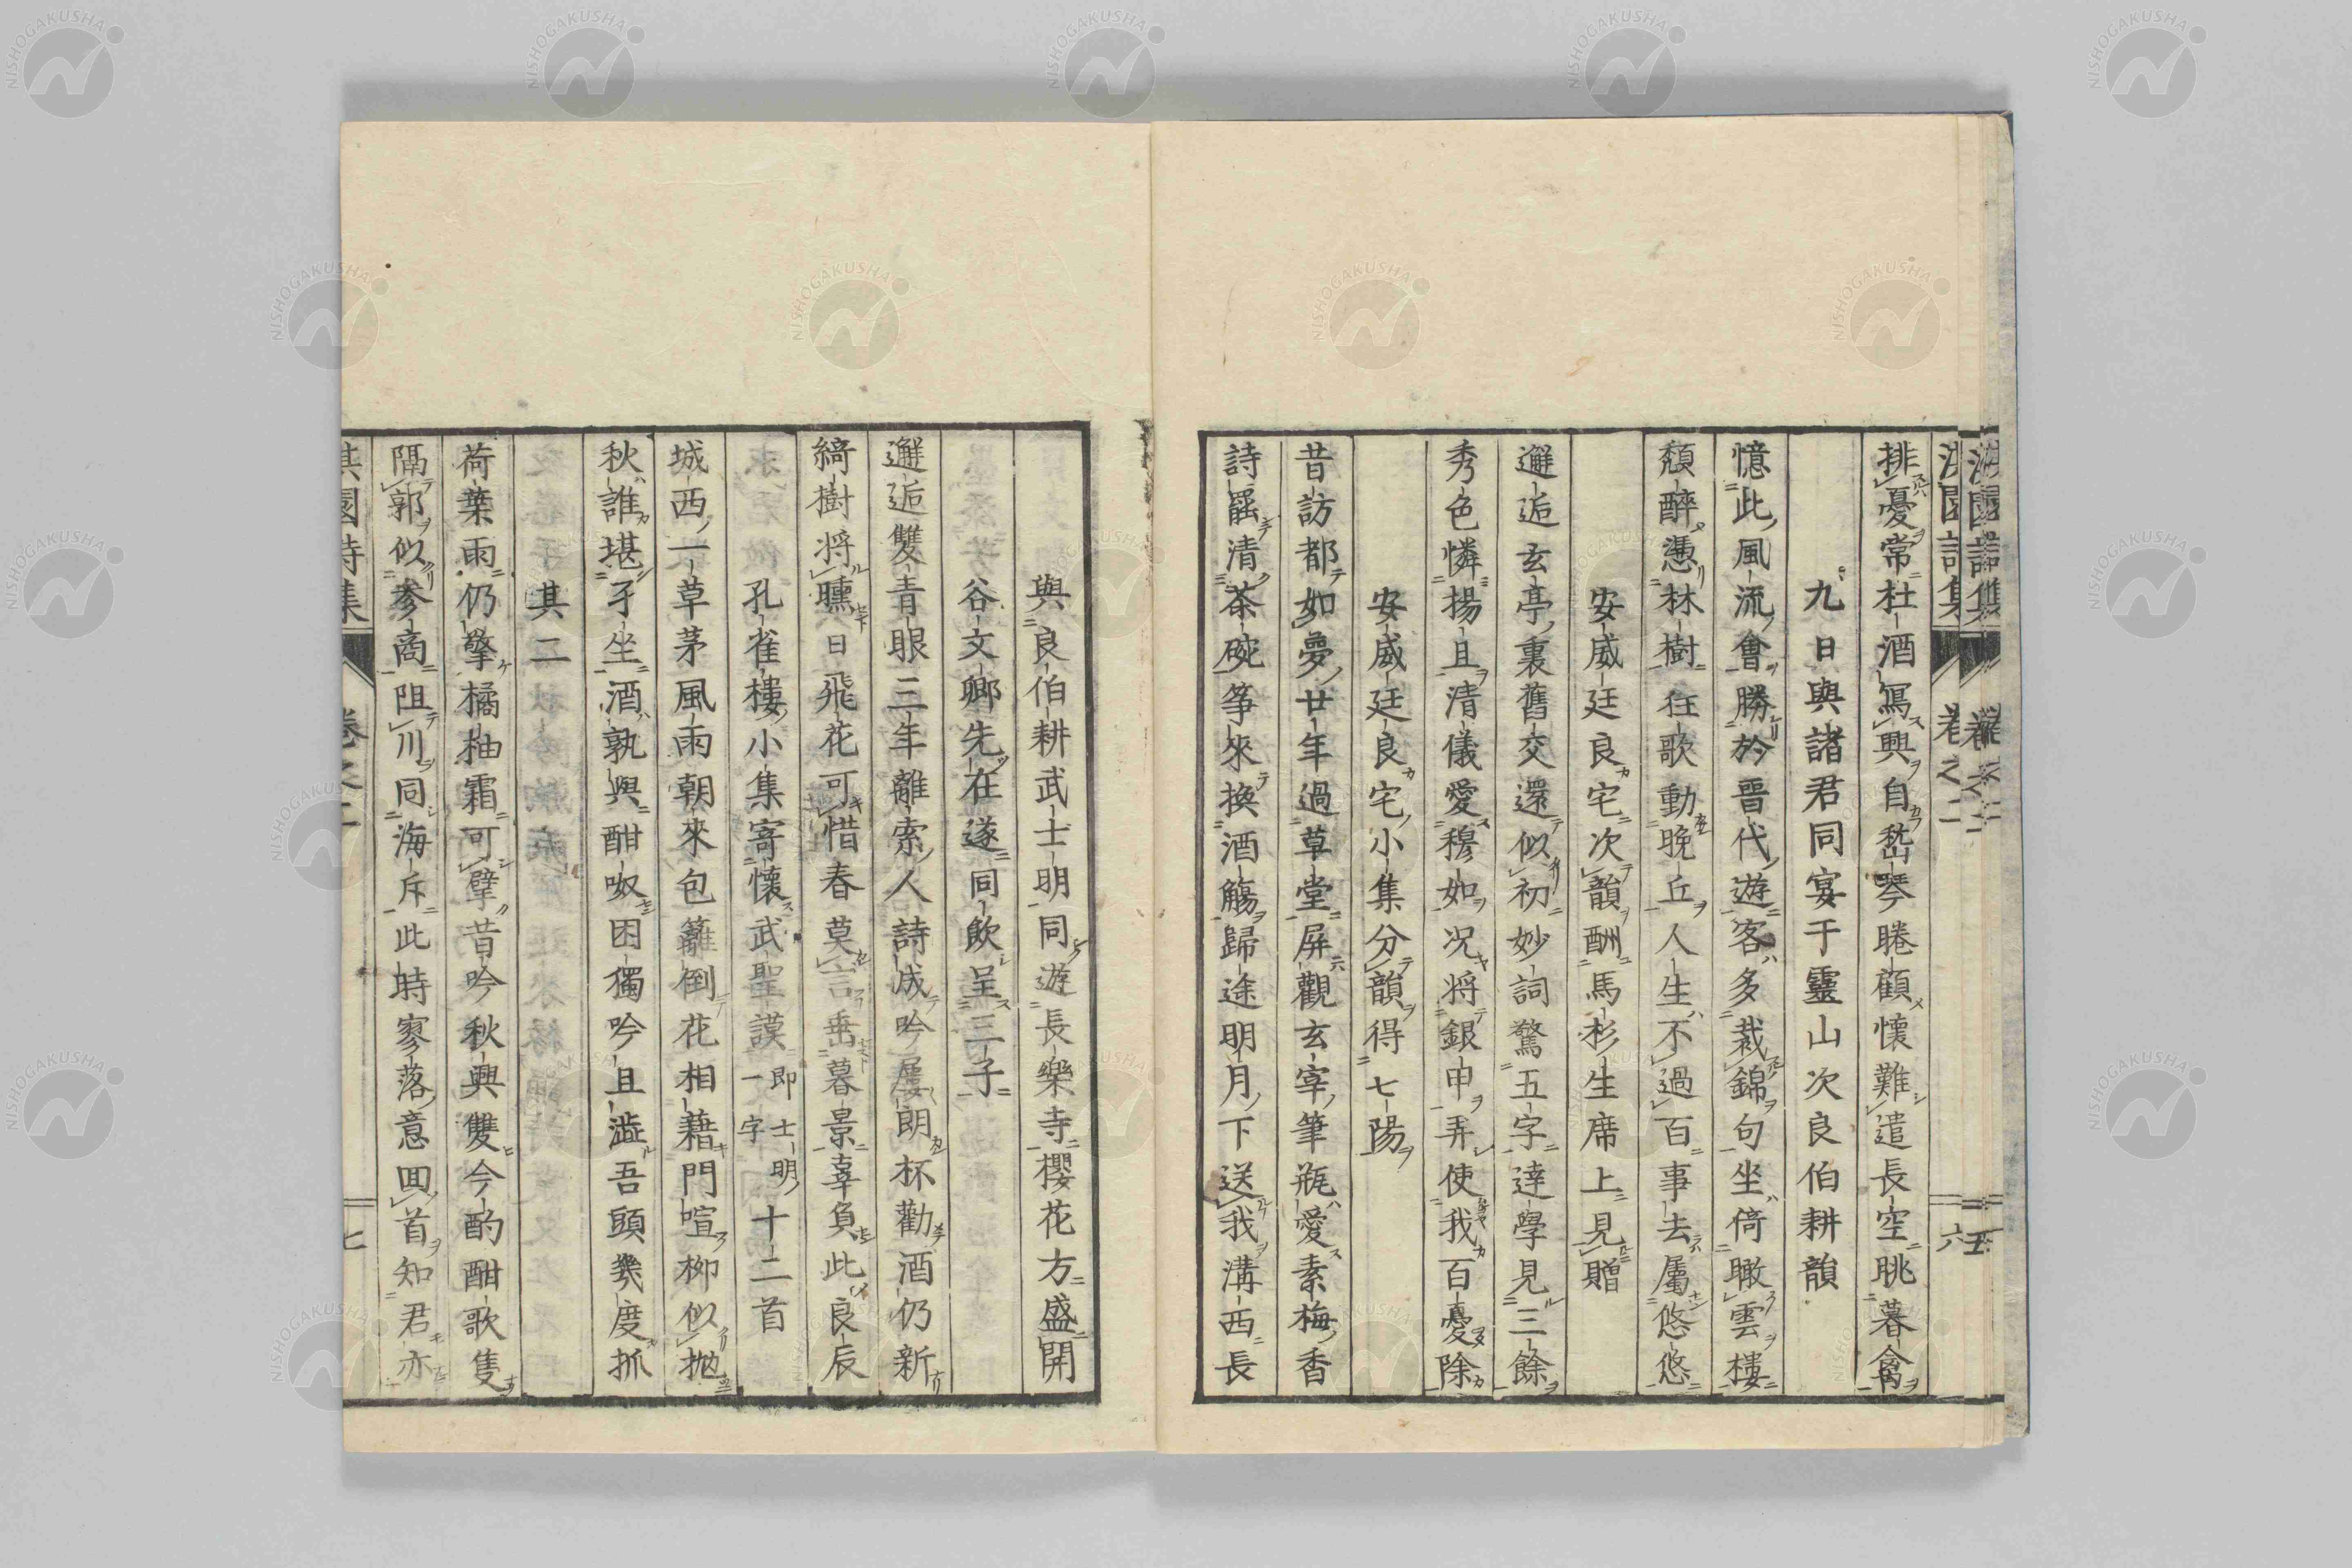 排憂常杜酒寫興自嵆琴睠顧懷難遣長空眺暮禽
九日與諸君同宴于靈山次良伯耕韻
憶此風流會勝於晋代遊客多裁錦句坐倚瞰雲樓
頹醉憑林樹狂歌動晚丘人生不過百事去屬悠悠
安威廷良宅次韻酬馬杉生席上見贈
邂逅玄亭裏舊交還似初妙詞驚五字達學見三餘
秀色憐揚且清儀愛穆如况将銀申弄使我百憂除
安威廷良宅小集分韻得七陽
昔訪都如夢廿年過草堂屏觀玄宰筆瓶愛素梅香
詩罷清茶碗筝來換酒觴歸途明月下送我溝西長
與良伯耕武士明同遊長樂寺櫻花方盛開
谷文卿先在遂同飲呈三子
邂逅雙青眼三年離索人詩成吟屢朗杯勸酒仍新
綺樹将曛日飛花可惜春莫言垂暮景辜負此良辰
孔雀樓小集寄懷武聖謨 即士明一字 十二首
城西一草茅風雨朝來包籬倒花相藉門喧柳似抛
秋誰堪孑坐酒孰與酣呶困獨吟且澁吾頭幾度抓
其二
荷葉雨仍擎橘柚霜可擘昔吟秋興雙今酌酣歌隻
隔郭似參商阻川同海斥此時寥落意回首知君亦
淇園詩集 卷之二 七